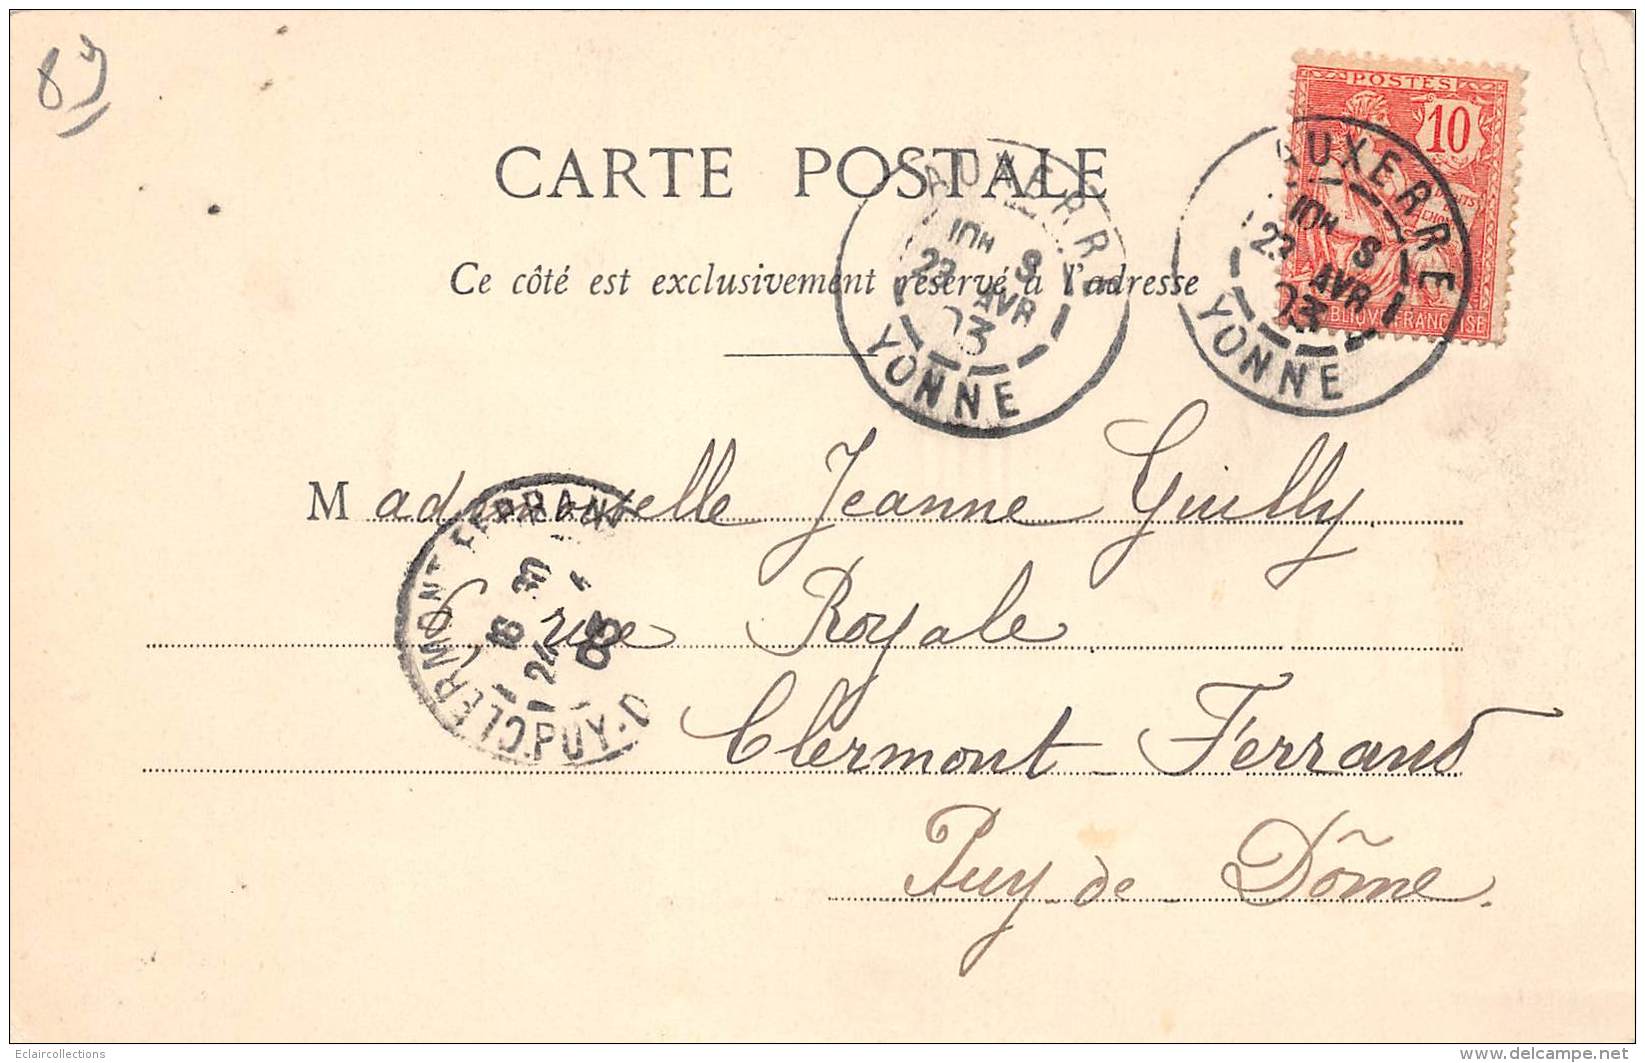 89
POSTES
10
CARTE POSTALE
Ce côté est exclusivement réservé à l'adresse
AUXERRE
10H S
23 AVR
03
YONNE
AUXERRE
10H S
23 AVR
03
YONNE
Mademoiselle Jeanne Guilly
6 rue Royale
Clermont-Ferrand
Puy-de-Dôme.
CLERMONT-FERRAND
16 30
24
03
PUY-D
Eclaircollections
www.delcampe.net